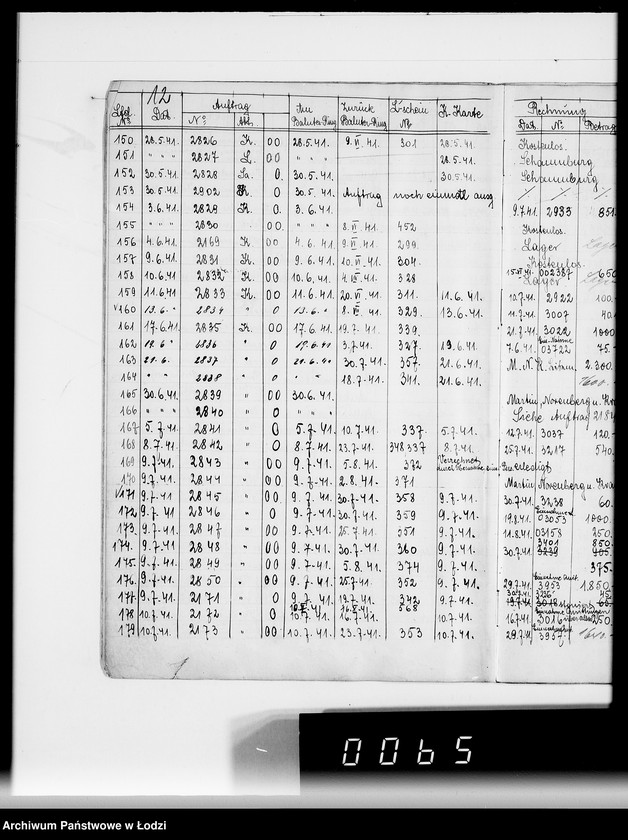 12
Lfd. Nº Dat. Auftrag Nº Abt. An Baluter-Ring Zurück Baluter-Ring L'schein Nr. K. Karte Rechnung Dat. Nº Betrag
150 28.5.41. 2826 K. 00 28.5.41. 9.VI.41. 301 28.5.41. Kostenlos.
151 " " " 2827 L. 00 " " " 28.5.41. Schaumburg
152 30.5.41 2828 La. 0. 30.5.41. 30.5.41. Schaumburg
153 30.5.41 2902 K. 0. 30.5.41. Auftrag noch einmal ausg
154 3.6.41. 2829 K. 0. 3.6.41. 9.7.41. 2933 851
155 " " " 2830 00. 8.VI.41. 452 Kostenlos.
156 4.6.41. 2169 K. 00 4.6.41. 9.VI.41. 299. Lager
157 9.6.41. 2831 K. 00 9.6.41. 10.VI.41. 304. Kostenlos.
158 10.6.41 2832 K. 00 10.6.41. 328 002387 650 Lager
159 11.6.41 2833 K. 00 11.6.41. 20.VI.41. 311. 11.6.41. 10.7.41. 2922 100.
160 13.6. " 2834 " 0 13.6. " 8.VII.41. 329. 13.6.41. 11.7.41. 3007 40.
161 17.6.41. 2835 K. 00 17.6.41. 19.7.41. 339. 21.7.41. 3022 1000
162 19.6 " 2836 " 0 19.6.41 3.7.41. 327. 19.6.41. 7.6.41. 03722 75.
163 21.6. 2837 " 0 21.6.40 30.7.41. 357. 21.6.41. 2.300.
164 " " 2838 " 0 " " 18.7.41. 341. 21.6.41.
165 30.6.41. 2839 " 00 30.6.41. Martin, Norenberg u. Kra
166 " " " 2840 " 0 " " " Siehe Auftrag 2184
167 5.7.41. 2841 " 0 5.7.41. 10.7.41. 337. 5.7.41. 12.7.41. 3037 120.
168 8.7.41. 2842 " 0 8.7.41. 23.7.41. 348 337 8.7.41. 25.7.41. 3217 540.
169 9.7.41. 2843 " 00 9.7.41. 5.8.41. 372 Verrechnet erledigt
170 9.7.41. 2844 " 00 9.7.41. 2.8.41. 371 Martin Norenberg u. Kra
171 9.7.41. 2845 " 00 9.7.41. 30.7.41. 358 9.7.41. 30.7.41. 3238 60.
172 9.7.41. 2846 " 0 9.7.41. 30.7.41. 359 9.7.41. 19.8.41. 03053 1000.
173 9.7.41. 2847 " 00 9.7.41. 25.7.41. 351 9.7.41. 11.8.41. 03158 250.
174. 9.7.41 2848 " 00 9.7.41. 30.7.41. 360 9.7.41. 30.7.41. 3401 3239 850.
175. 9.7.41 2849 " 00 9.7.41. 5.8.41. 374 9.7.41. 375.
176. 9.7.41. 2850 " 00 9.7.41. 25.7.41. 352 9.7.41. 29.7.41. 3953 1850.
177 9.7.41. 2171 " 0 9.7.41. 19.7.41. 342 9.7.41. 3236
178 10.7.41. 2172 " 0 10.7.41. 16.7.41. 268 10.7.41. 16.7.41. 3016 250.
179 10.7.41. 2173 " 0 10.7.41. 23.7.41. 353 10.7.41. 29.7.41. 3957
0065
Archiwum Państwowe w Łodzi